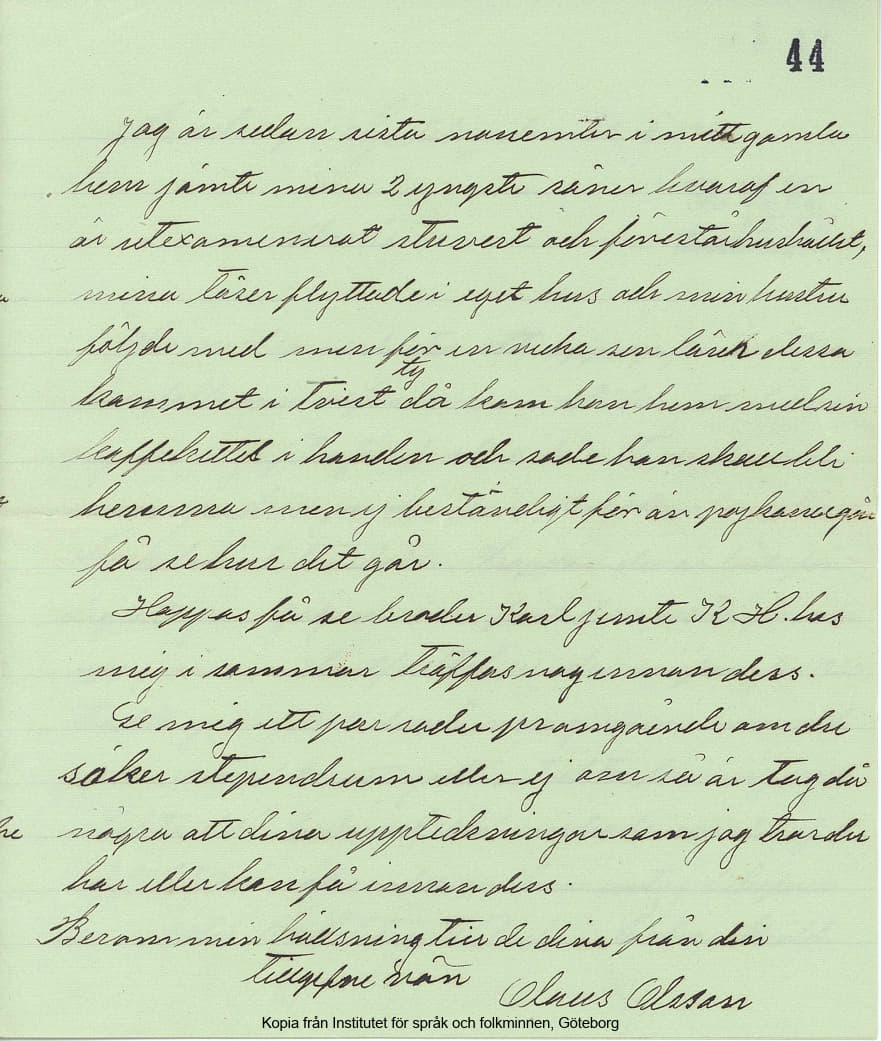 44
Jag är sedan sista november i mitt gamla
hem jämte mina 2 yngste söner hvaraf en
är utexamenerat stuvert och förestår hushållet,
mina töser flyttade i eget hus och min hustru
följde med men för en vecka sen lären dessa
kommet i tvist ty då kom hon hem med sin
kaffekittel i handen och sade hon skall bli
hemma men ej beständigt för än pojkarna går
få se hur det går.
Hoppas få se broder Karl jemte K H. hos
mig i sommar träffas nog innan dess.
Ge mig ett par rader omgående om du
söker stipendium eller ej om så är tag då
några att dina uppteckningar som jag tror du
har eller kan få innan dess.
Berom min hällsning till de dina från din
tillgifne vän
Olaus Olsson
Kopia från Institutet för språk och folkminnen, Göteborg